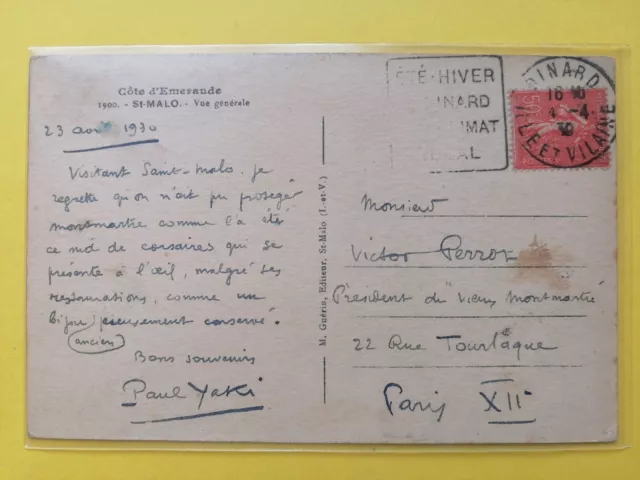 Côte d'Emeraude
1900. - St-MALO. - Vue générale
23 avril 1930
Visitant Saint-Malo. je
regrette qu'on n'ait pu protéger
montmartre comme l'a été
ce nid de corsaires qui se
présente à l'œil, malgré ses
restaurations, comme un
bijou pieusement conservé.
(ancien)
Bons souvenirs
Paul Yaki
M. Guérin, Editeur, St-Malo (I.-et-V.)
ÉTÉ-HIVER
INARD
IMAT
AL
DINARD
16
-4
30
ILLE ET VILAINE
50
Monsieur
Victor Perrot
Président du Vieux Montmartre
22 Rue Tourlaque
Paris XII